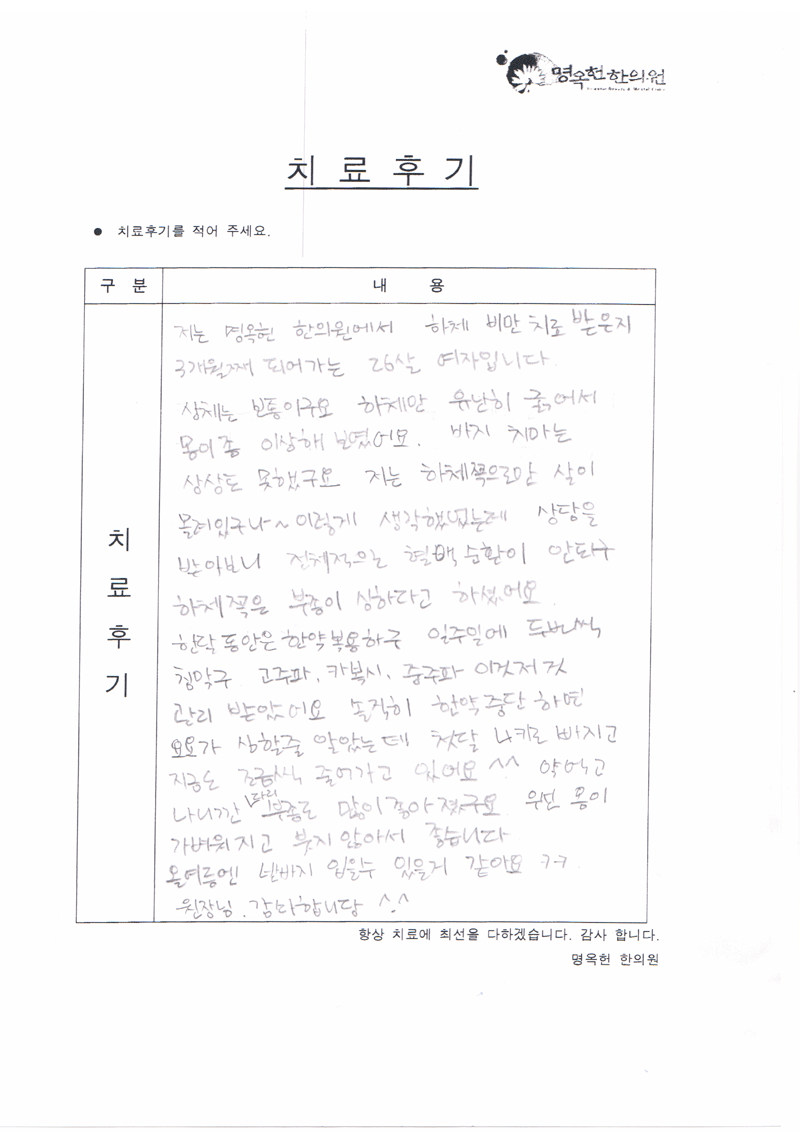 명옥헌한의원
치 료 후 기
● 치료후기를 적어 주세요.
구 분
내 용
치
료
후
기
저는 명옥헌 한의원에서 하체 비만 치료 받은지
3개월째 되어가는 26살 여자입니다.
상체는 보통이구요 하체만 유난히 굵어서
몸이 좀 이상해 보였어요. 바지 치마는
상상도 못했구요 저는 하체쪽으로만 살이
몰려있구나~ 이렇게 생각했었는데 상담을
받아보니 전체적으로 혈액순환이 안되구
하체쪽은 부종이 심하다고 하셨어요.
한달동안은 한약복용하구 일주일에 두번씩
침맞구 고주파, 카복시, 중주파 이것저것
관리 받았어요 솔직히 한약중단 하면
요요가 심할줄 알았는데 첫달 4키로 빠지고
지금도 조금씩 줄어가고 있어요 ^^ 약먹고
나니깐 다리 부종도 많이 좋아졌구요 우선 몸이
가벼워지고 붓지 않아서 좋습니다
올여름엔 반바지 입을수 있을거 같아요 ㅋㅋ
원장님. 감사합니당 ^.^
항상 치료에 최선을 다하겠습니다. 감사 합니다.
명옥헌 한의원